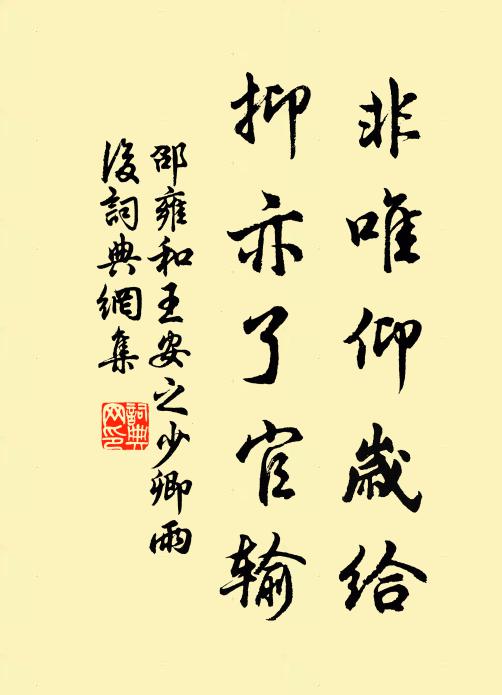 非唯仰歲给
抑亦了官输
邵雍和王安之少卿雨
後詞典網集
詞典
网印